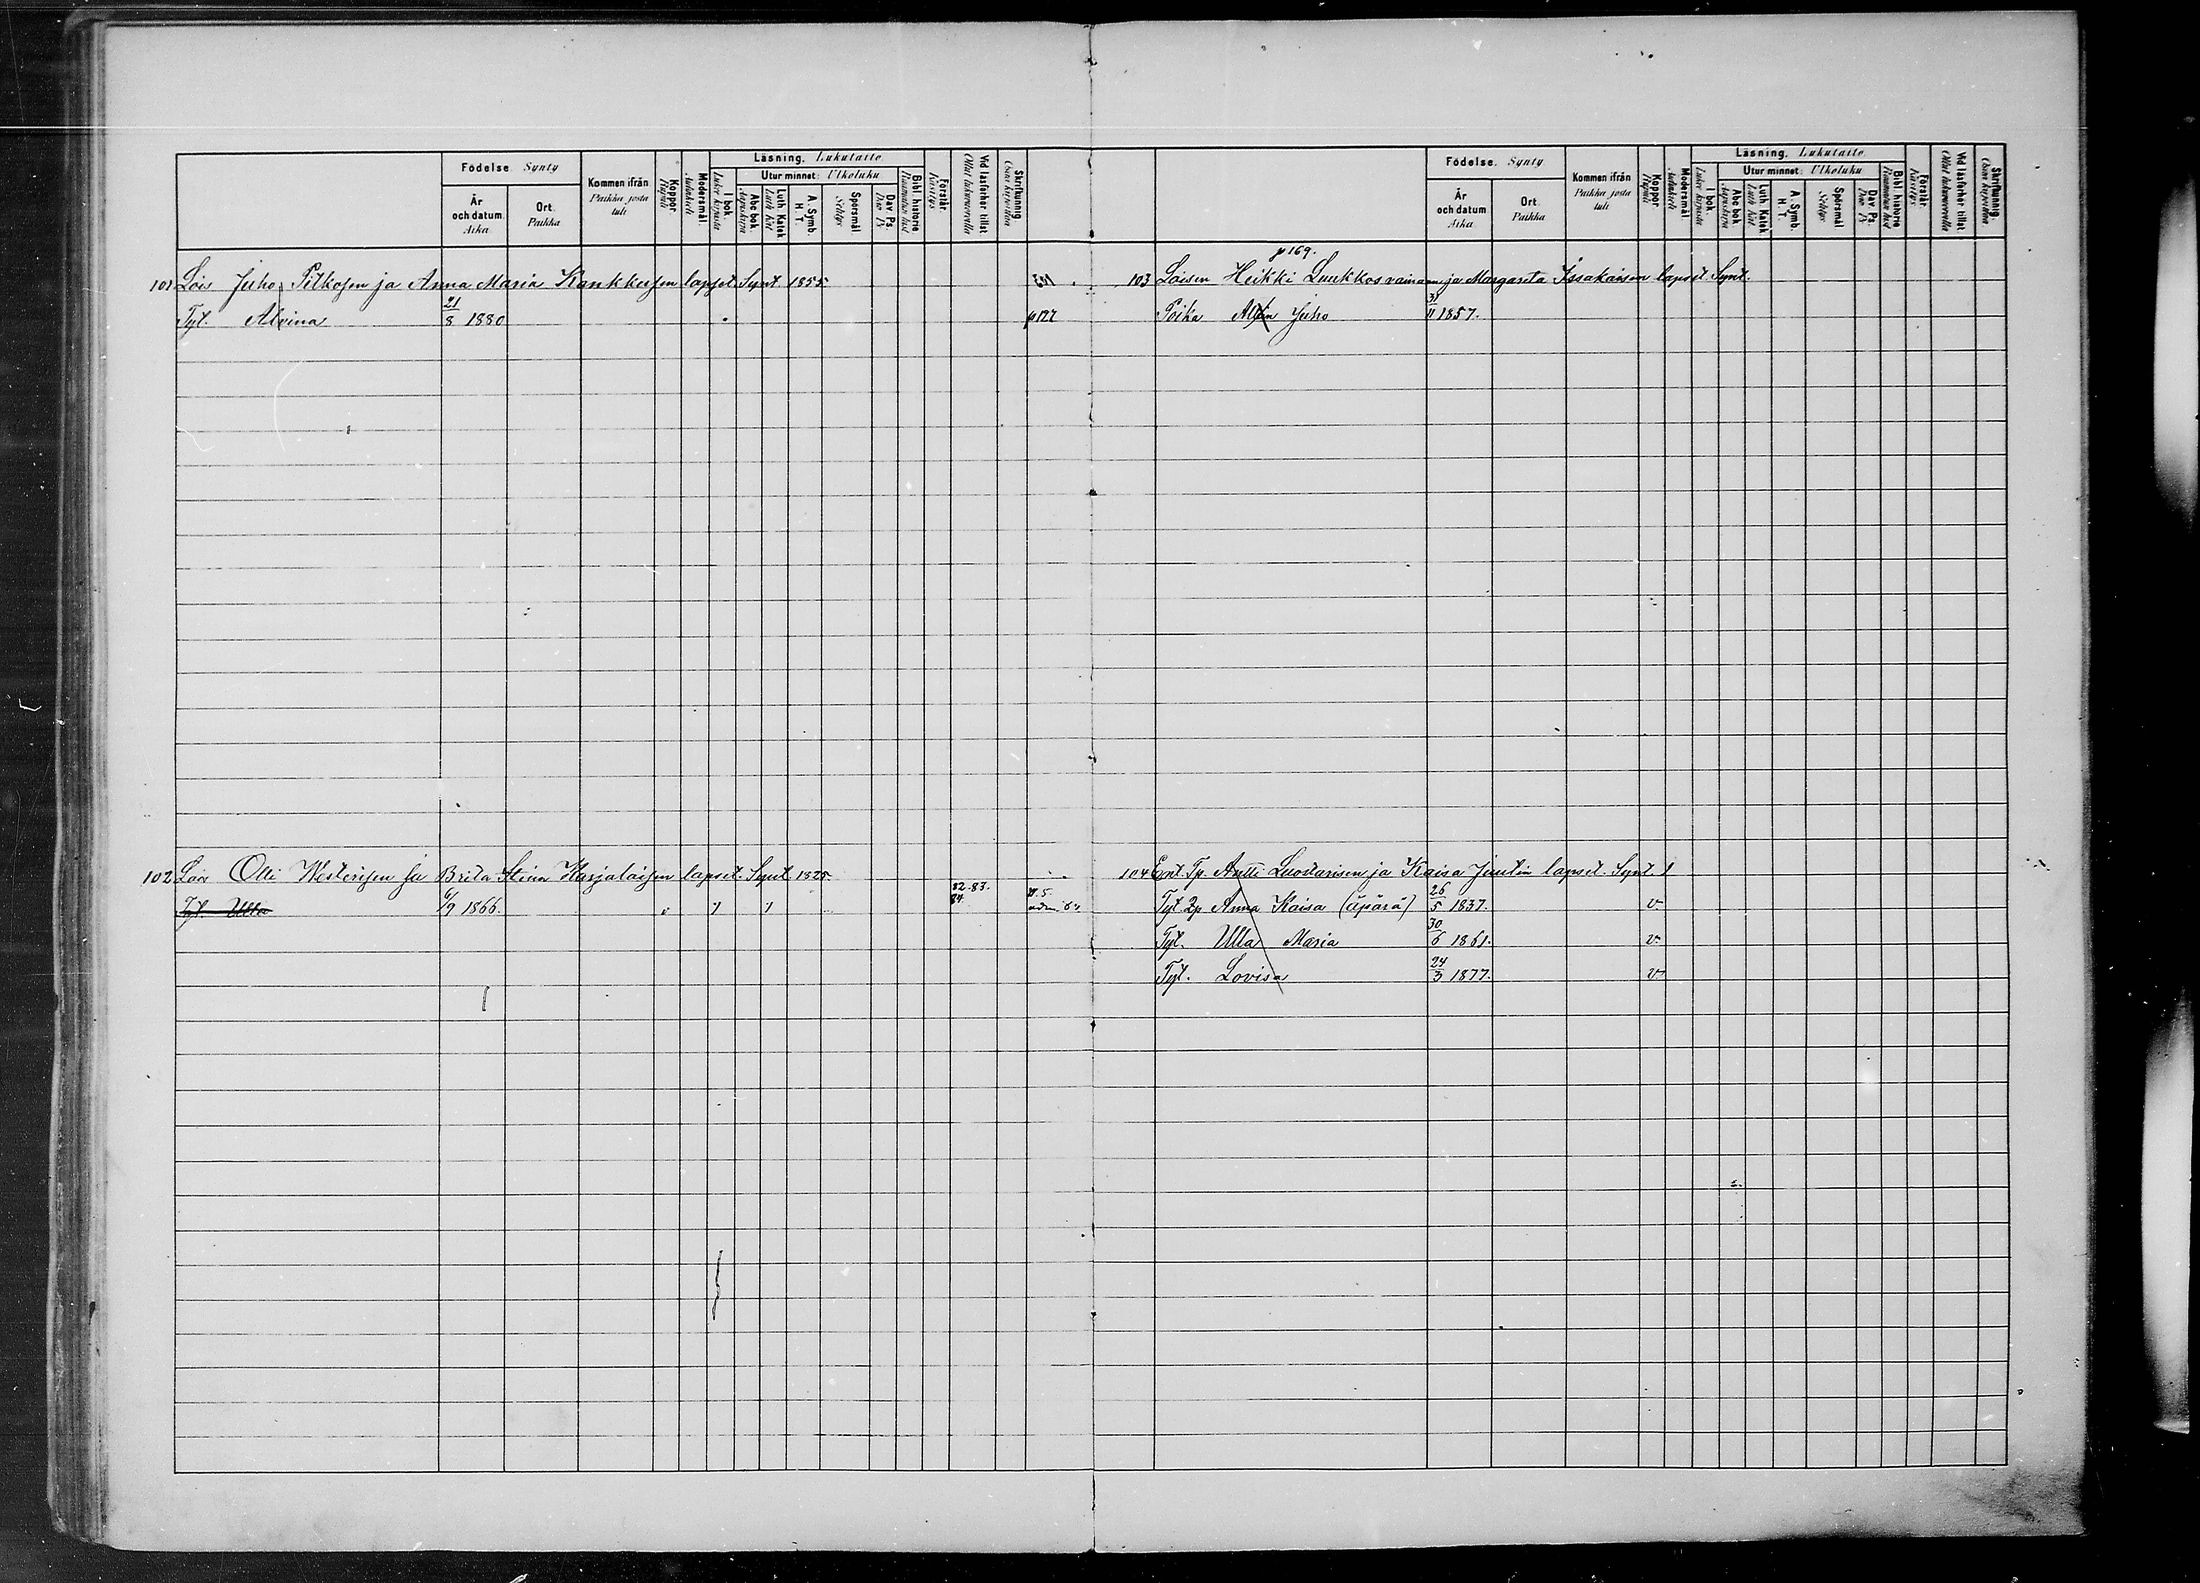 Födelse. Synty
År och datum. Aika.
Ort. Paikka
Kommen ifrån Paikka josta tuli
Koppor. Rupuli
Modersmål.
Läsning. Lukutaito.
Utur minnet: Ulkoluku
I bok. Lukee kirjasta
Abc bok. Aapiskirja
Luth. Katek Luth. Kat.
A. Symb. H. T.
Spörsmål Selitys
Dav. Ps. Dav. Ps.
Bibl. historie
Förstår. Käsitys
Vid läsförhör tillst. Ollut lukuvuorolla
Skriftkunnig. Osaa kirjoittaa
101 Lois Juho Pitkosen ja Anna Maria Kankkusen lapset. Synt. 1855
Tyt. Alvina 21/8 1880 p 127
102 Lois Olli Westerisen ja Brita Stina Karjalaisen lapset. Synt. 1825.
Tyt. Ulla 6/9 1866. 82. 83. 84.
Födelse. Synty
År och datum Aika
Ort. Paikka
Kommen ifrån Paikka josta tuli
Koppor Rupuli
Modersmål.
Läsning. Lukutaito
Utur minnet: Ulkoluku
I bok. Lukee kirjasta
Abc bok. Aapiskirja
Luth. Katek Luth. Kat.
A. Symb. H. T.
Spörsmål Selitys
Dav. Ps. Dav. Ps.
Bibl. historie
Förstår. Käsitys
Vid läsförhör tillst. Ollut lukuvuorolla
Skriftkunnig. Osaa kirjoittaa
p 169.
103 Loisen Heikki Luukkos vainaan ja Margareta Issakaisen lapset Synt.
Poika Juho 1857.
104 Ent. Tp. Antti Luostarisen ja Kaisa Juutin lapset. Synt. 1
Tyt. 2p Anna Kaisa (äpärä) 26/5 1837. v.
Tyt. Ulla Maria 30/6 1861. v.
Tyt. Lovisa 24/3 1877. v